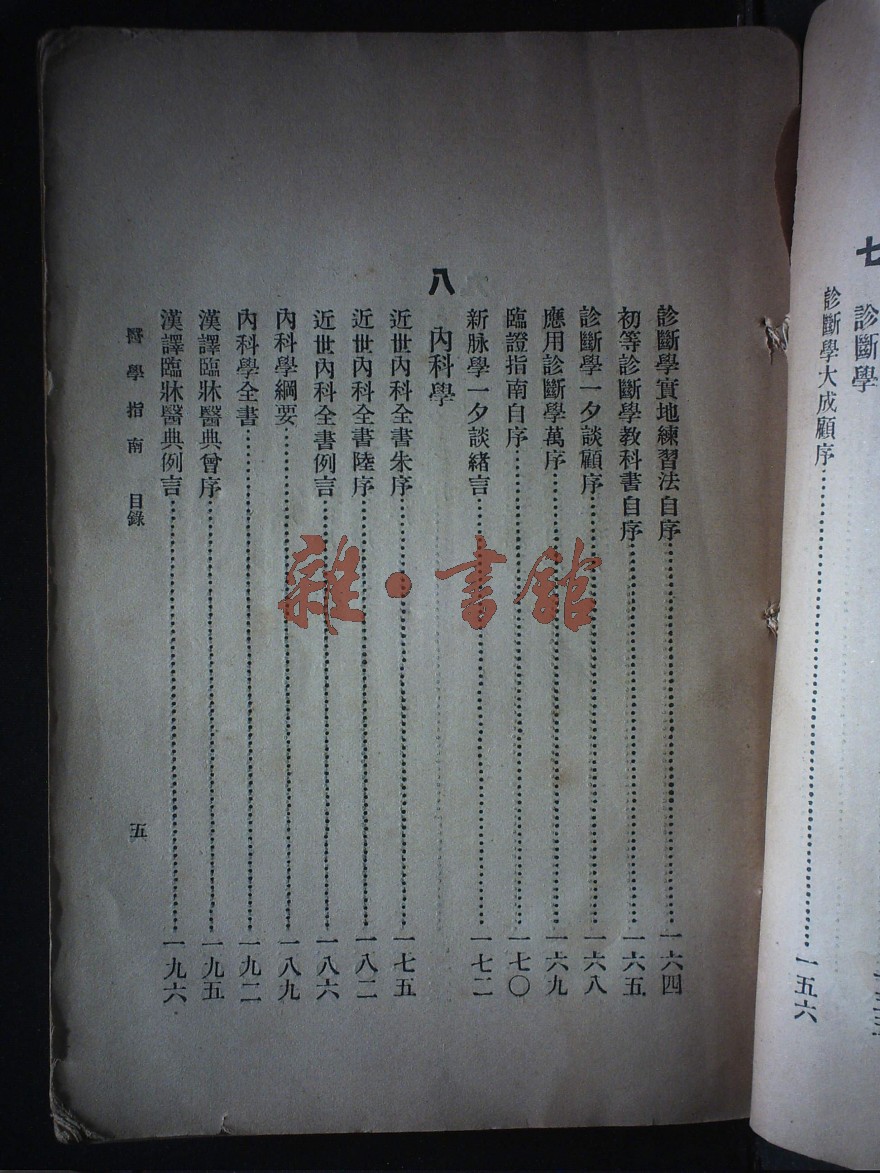 七
診斷學
診斷學大成顧序……一五六
診斷學實地練習法自序……一六四
初等診斷學教科書自序……一六五
診斷學一夕談顧序……一六八
應用診斷學萬序……一六九
臨證指南自序……一七〇
新脉學一夕談緒言……一七二
八 內科學
近世內科全書朱序……一七五
近世內科全書陸序……一八二
近世內科全書例言……一八六
內科學綱要……一八九
內科學全書……一九二
漢譯臨牀醫典曾序……一九五
漢譯臨牀醫典例言……一九六
醫學指南 目錄 五
雜·書館